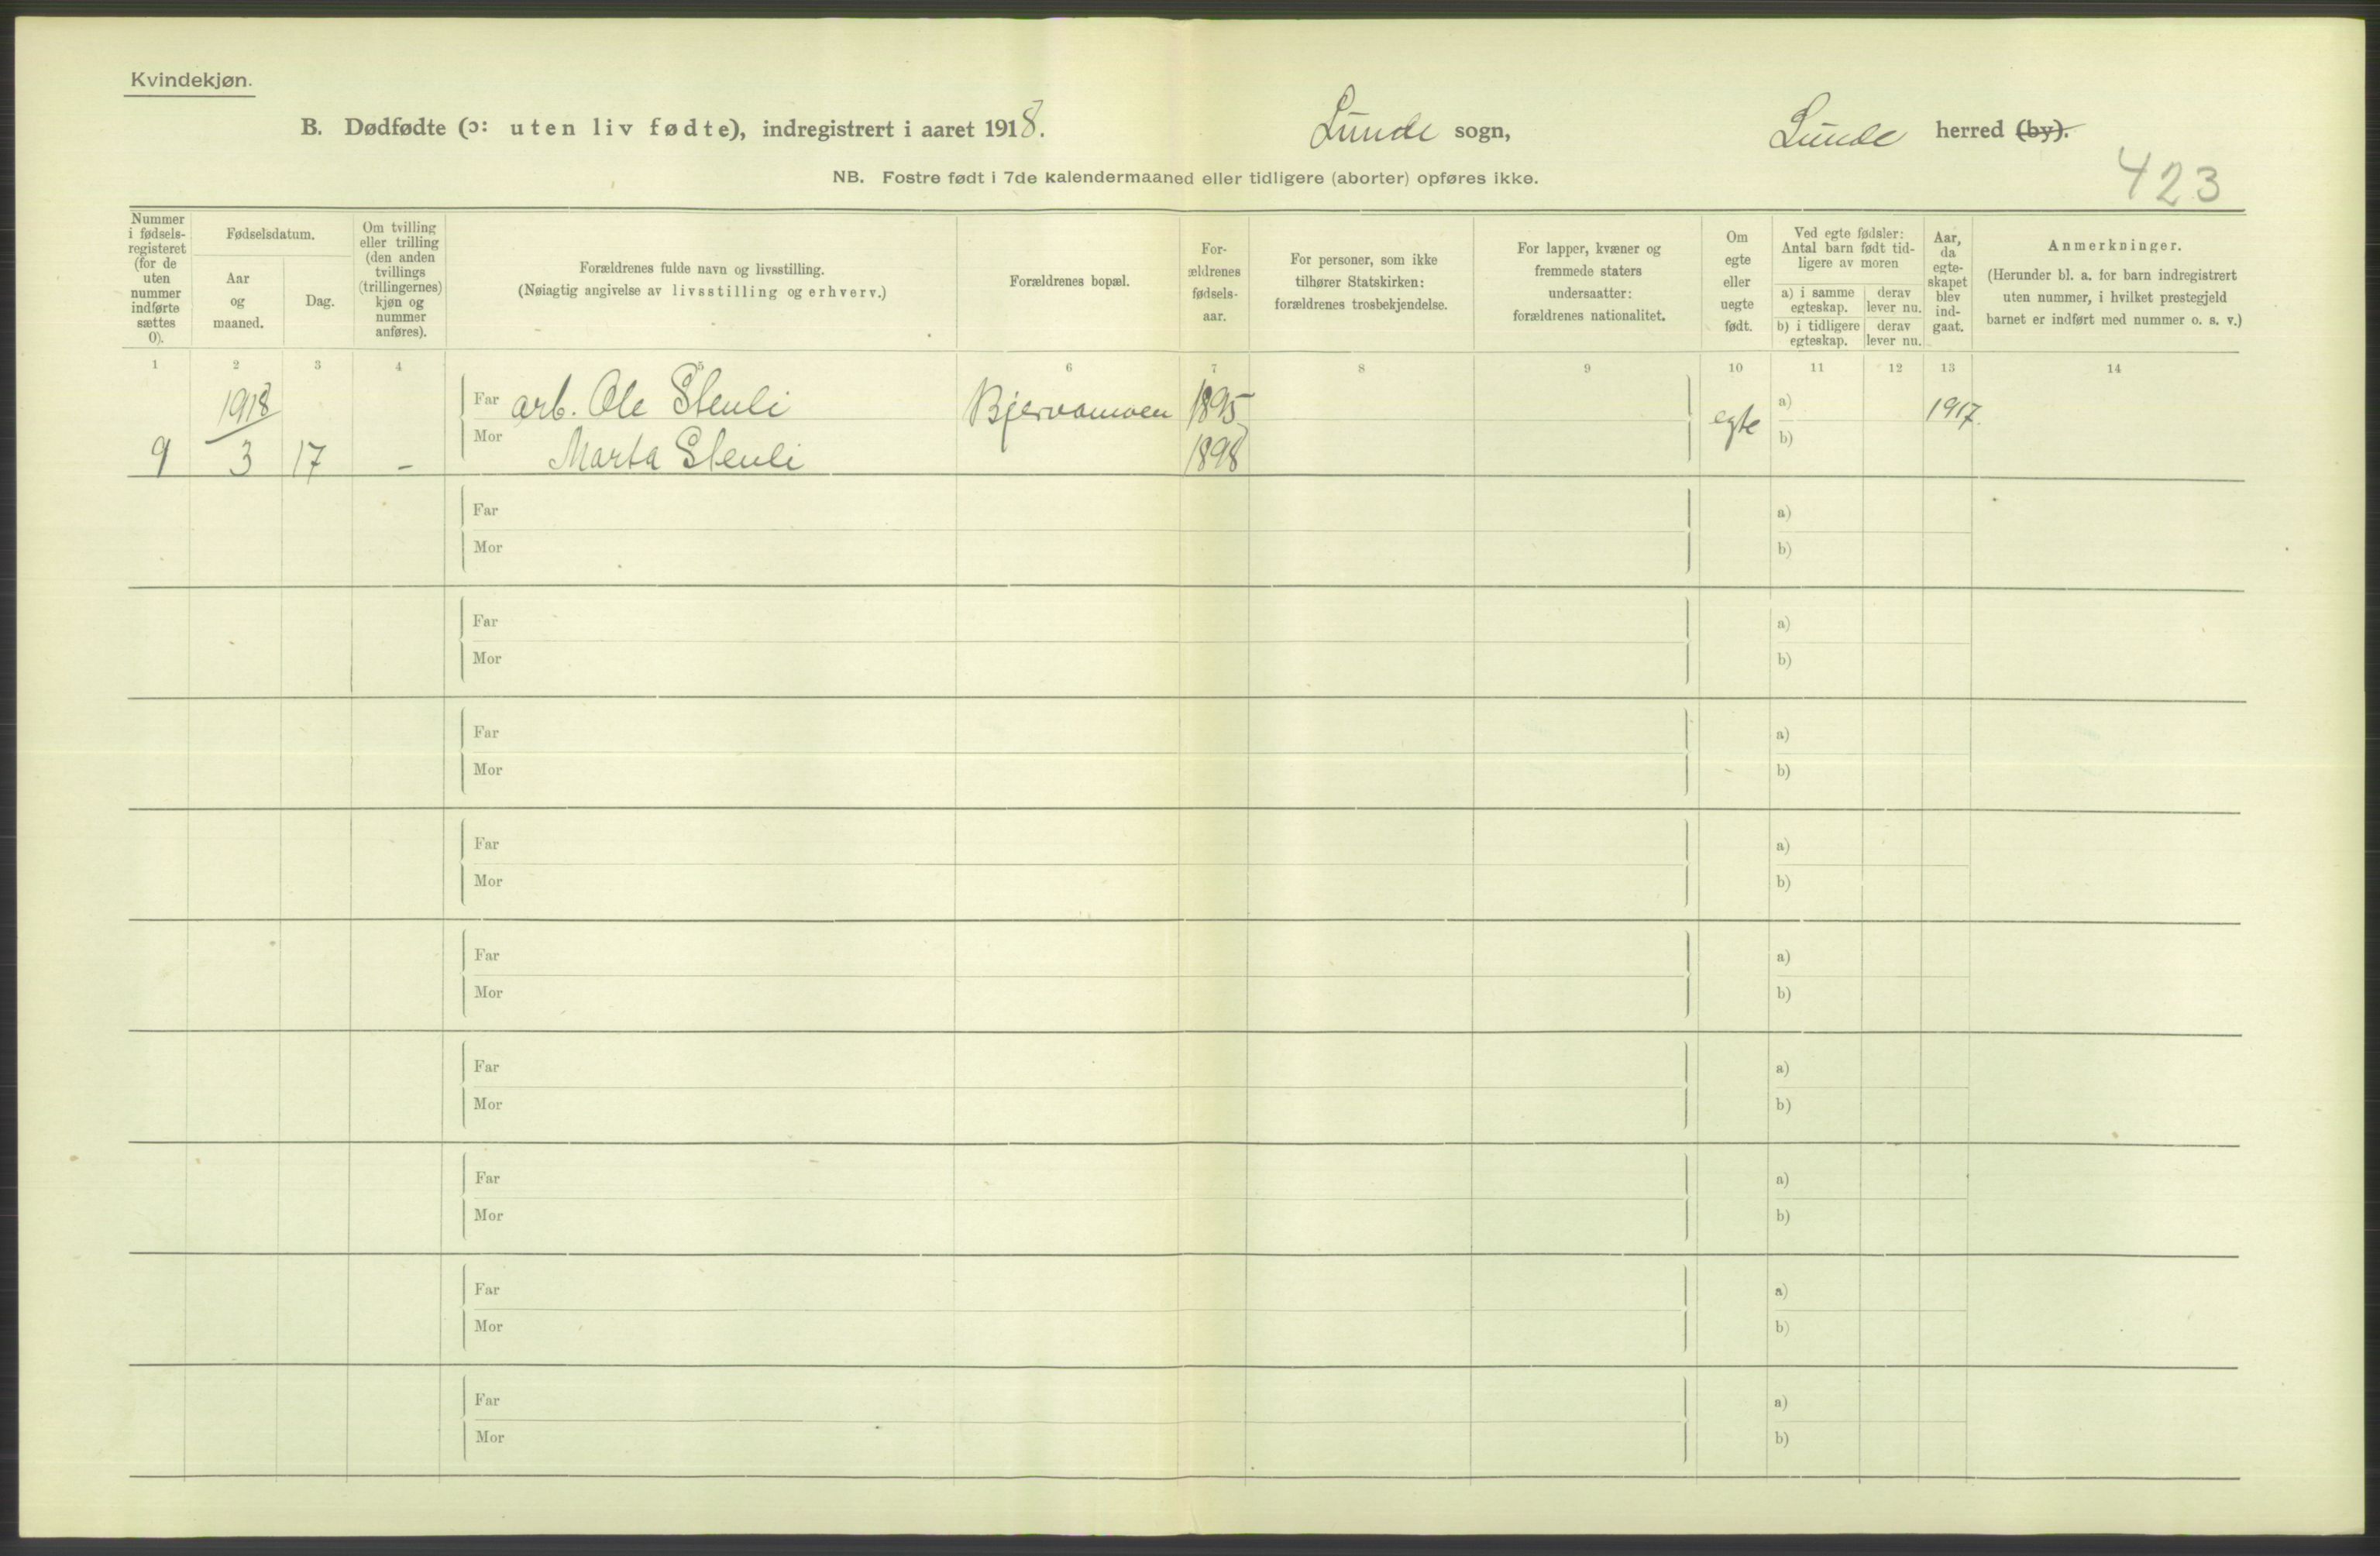 Kvindekjøn.
B. Dødfødte (ɔ: uten liv fødte), indregistrert i aaret 1918. Lunde sogn, Lunde herred (by).
NB. Fostre født i 7de kalendermaaned eller tidligere (aborter) opføres ikke.
423
Nummer i fødsels-registeret (for de uten nummer indførte sættes 0).
Fødselsdatum.
Aar og maaned.
Dag.
Om tvilling eller trilling (den anden tvillings (trillingernes) kjøn og nummer anføres).
Forældrenes fulde navn og livsstilling.
(Nøiagtig angivelse av livsstilling og erhverv.)
Forældrenes bopæl.
For-ældrenes fødsels-aar.
For personer, som ikke tilhører Statskirken: forældrenes trosbekjendelse.
For lapper, kvæner og fremmede staters undersaatter: forældrenes nationalitet.
Om egte eller uegte født.
Ved egte fødsler: Antal barn født tid-ligere av moren
a) i samme egteskap.
derav lever nu.
b) i tidligere egteskap.
derav lever nu.
Aar, da egte-skapet blev ind-gaat.
Anmerkninger.
(Herunder bl. a. for barn indregistrert uten nummer, i hvilket prestegjeld barnet er indført med nummer o. s. v.)
1 2 3 4 5 6 7 8 9 10 11 12 13 14
1918 Far arb. Ole Stenli Bjervamoen 1895 egte a) 1917.
9 3 17 – Mor Marta Stenli 1898 b)
Far a)
Mor b)
Far a)
Mor b)
Far a)
Mor b)
Far a)
Mor b)
Far a)
Mor b)
Far a)
Mor b)
Far a)
Mor b)
Far a)
Mor b)
Far a)
Mor b)